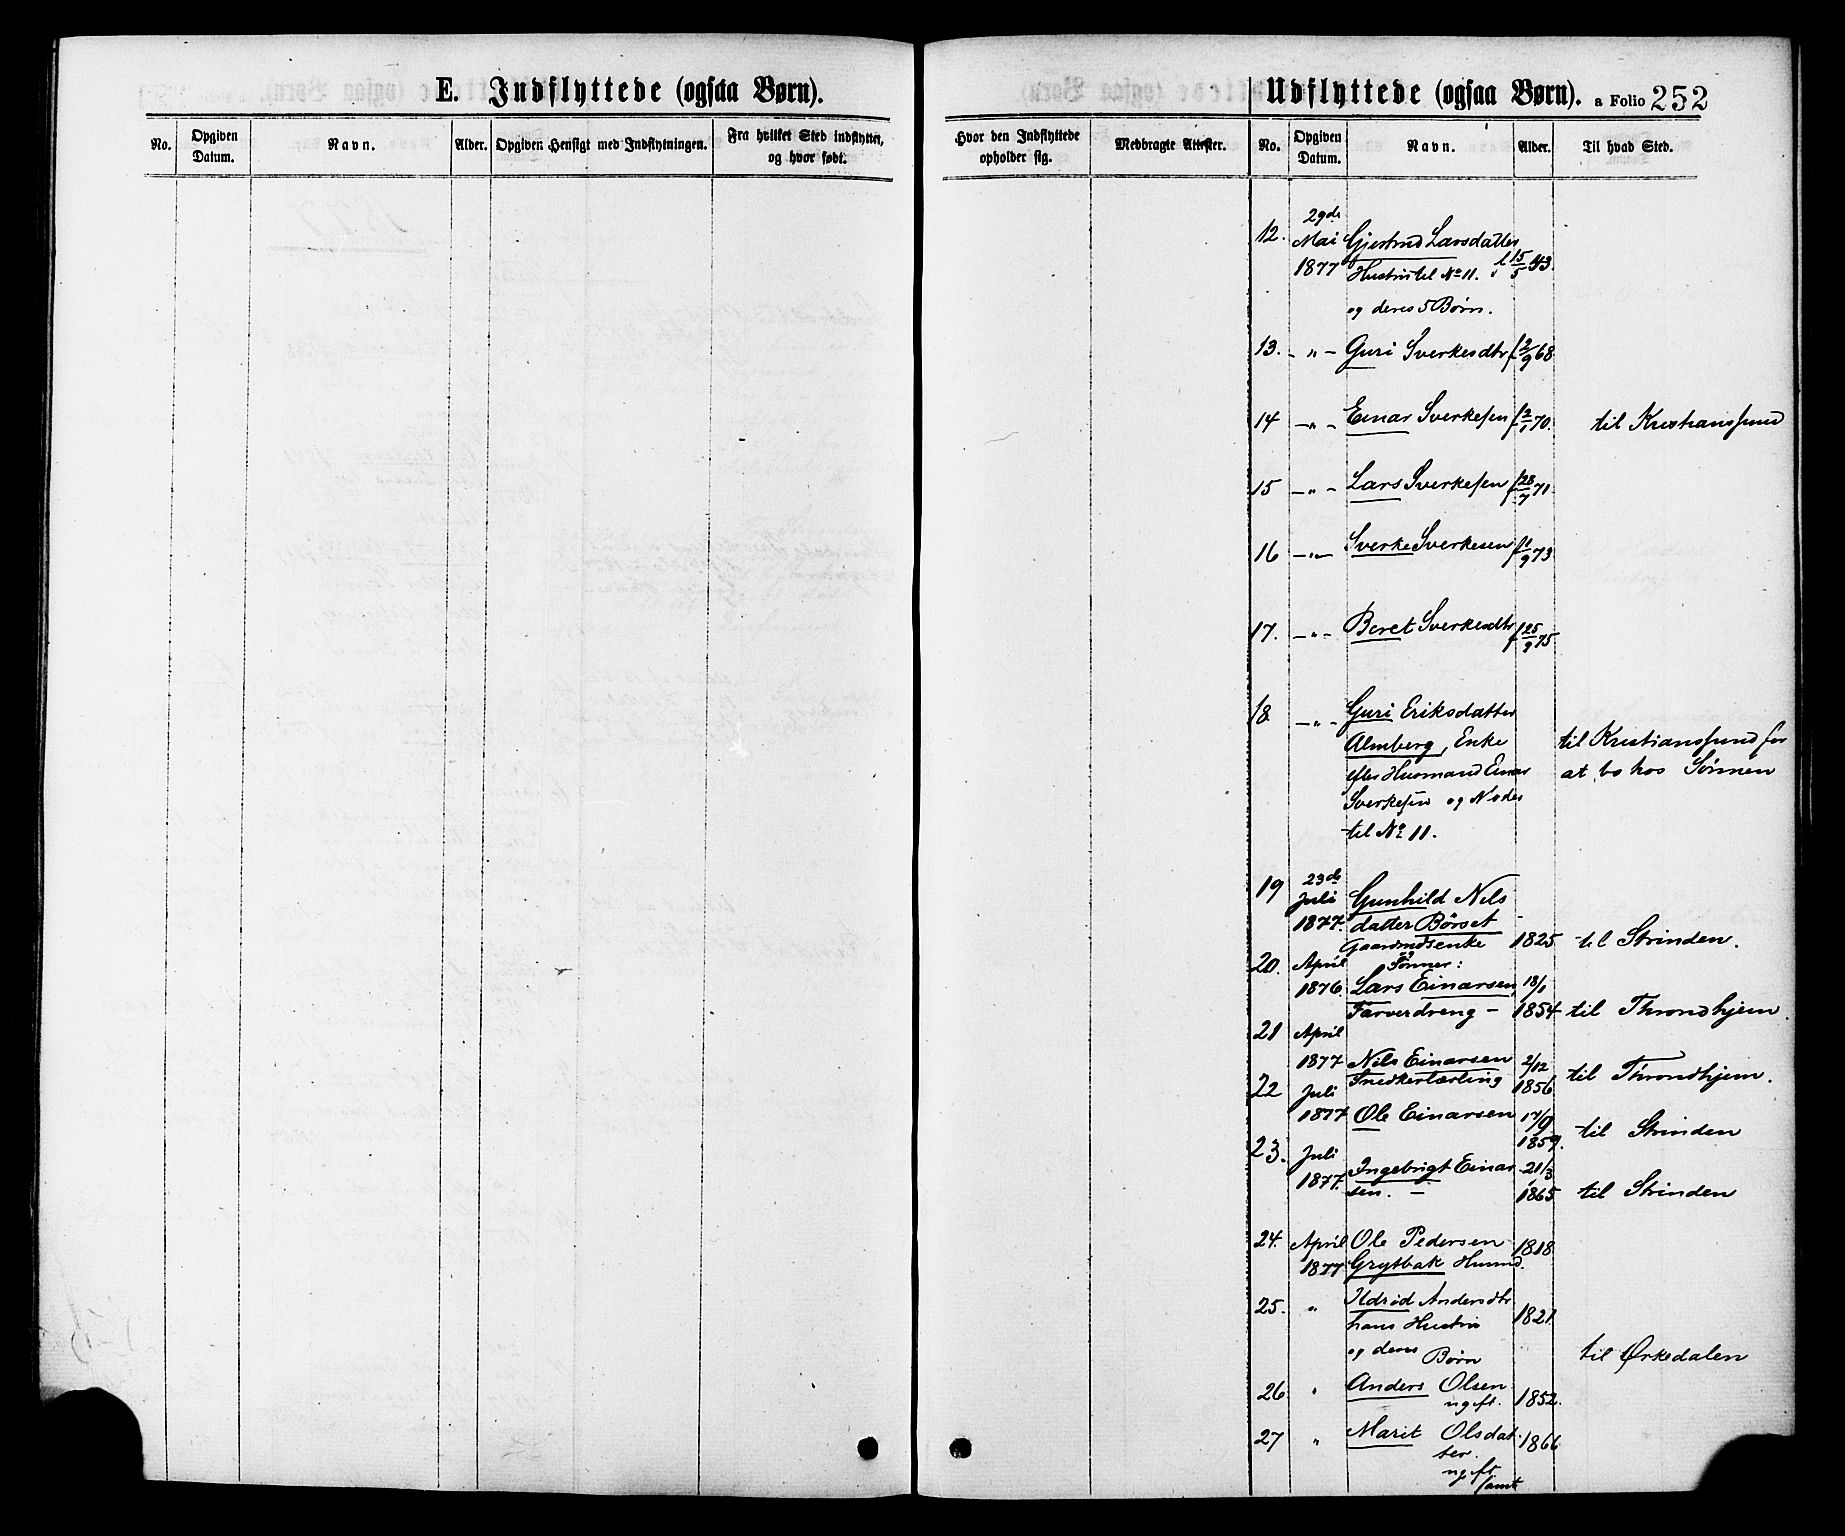 E. Indflyttede (ogsaa Børn).
No.
Opgiven Datum.
Navn.
Alder.
Opgiven Hensigt med Indflytningen.
Fra hvilket Sted indflyttet, og hvor født.
Udflyttede (ogsaa Børn). a Folio 252
Hvor den Indflyttede opholder sig.
Medbragte Attester.
No.
Opgiven Datum.
Navn.
Alder.
Til hvad Sted.
29de
12. Mai Gjertrud Larsdatter
1877 Hustru til No 11. f 15/5 43.
og deres 5 Børn.
13. - " - Guri Sverkesdtr f 2/9 68
14 - " - Einar Sverkesen f 2/1 70. til Kristianssund
15 - " - Lars Sverkesen f 28/7 71
16 - " - Sverke Sverkesen f 1/9 73
17. - " - Beret Sverkesdtr f 25/9 75
18 - " - Guri Eriksdatter
Almberg, Enke til Kristianssund for
efter Husmand Einar at bo hos Sønnen
Sverkesen og Moder
til No 11.
23de
19 Juli Gunhild Nils
1877. datter Børset
Gaardmdsenke 1825 til Strinden.
20. April Sønner:
1876. Lars Einarsen, 18/1
Farverdreng - 1854 til Throndhjem.
21 April
1877 Nils Einarsen 2/12
Snedkerlærling 1856 til Throndhjem.
22 Juli
1877 Ole Einarsen 17/9
1859. til Strinden
23. Juli
1877. Ingebrigt Einar 21/3
sen. - 1865 til Strinden
24. April Ole Pedersen 1818
1877 Grytbak Husmd.
25. " Ildrid Andersdtr
hans Hustru 1821
og deres Børn til Ørkedalen
26 " Anders Olsen
ugft. 1852.
27 " Marit Olsdat- 1866
ter.
ugft
samt